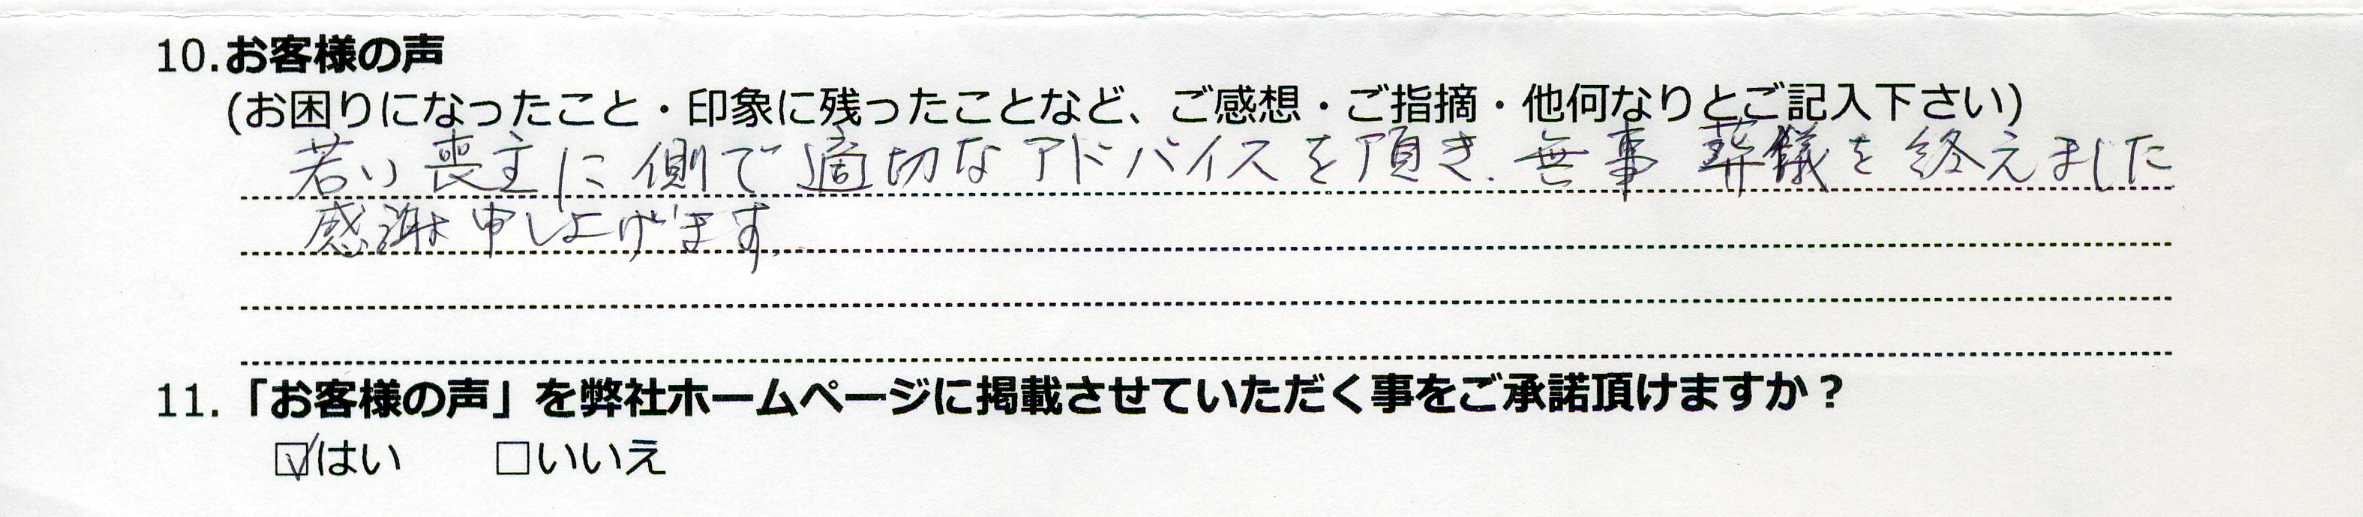 10.お客様の声
(お困りになったこと・印象に残ったことなど、ご感想・ご指摘・他何なりとご記入下さい)
若い喪主に側で適切なアドバイスを頂き.無事葬儀を終えました
感謝申し上げます.
11.「お客様の声」を弊社ホームページに掲載させていただく事をご承諾頂けますか？
☑はい　□いいえ